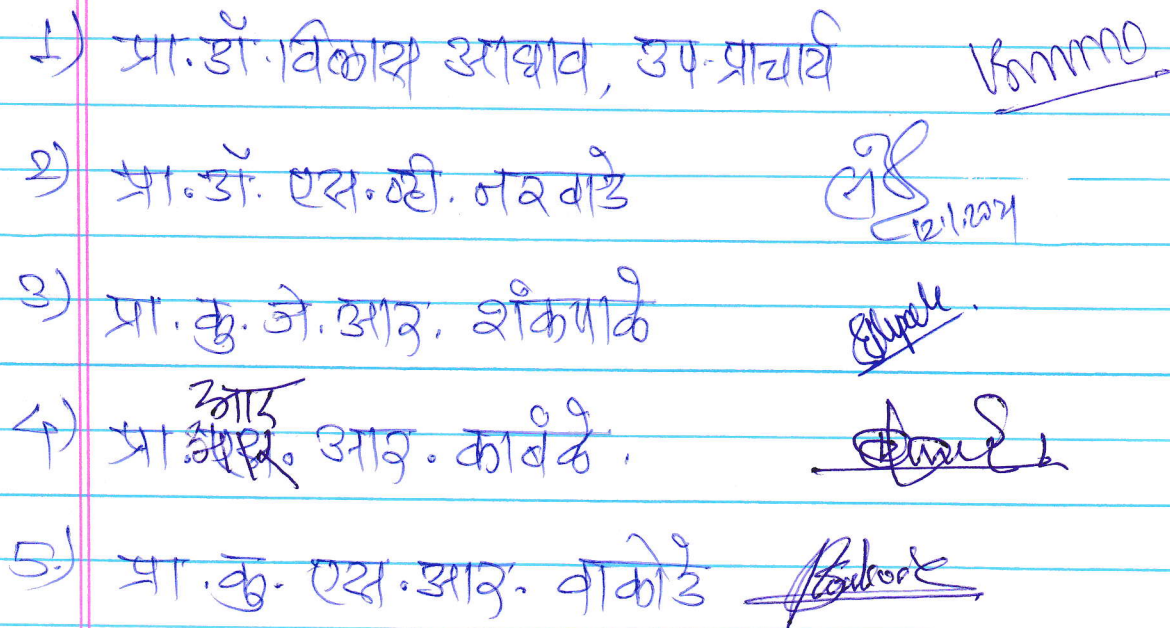 1) प्रा.डॉ.विलास आघाव, उप-प्राचार्य
2) प्रा.डॉ. एस.व्ही. नरवाडे 12.1.2021
3) प्रा.कु.जे.आर. शंकपाळे
4) प्रा. आर. कांबळे.
5) प्रा.कु. एस.आर. वाकोडे